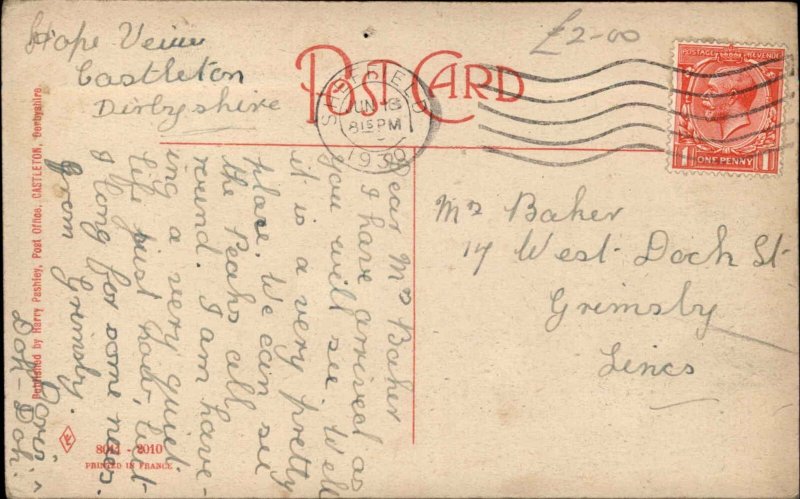 £2-00
Hope Veiw
Castleton
Derbyshire
POST CARD
SHEFFIELD
JUN
8 15 PM
193
POSTAGE REVENUE
ONE PENNY
Dear Mrs Baker
I have arrived as
you will see. Well
it is a very pretty
place. We can see
the Peaks all
round. I am have-
ing a very quiet
life just that, but
I long for some news
from Grimsby.
Mrs Baker
17 West Dock St
Grimsby
Lincs
Published by Harry Pashley, Post Office, CASTLETON, Derbyshire.
8011 - 2010
PRINTED IN FRANCE